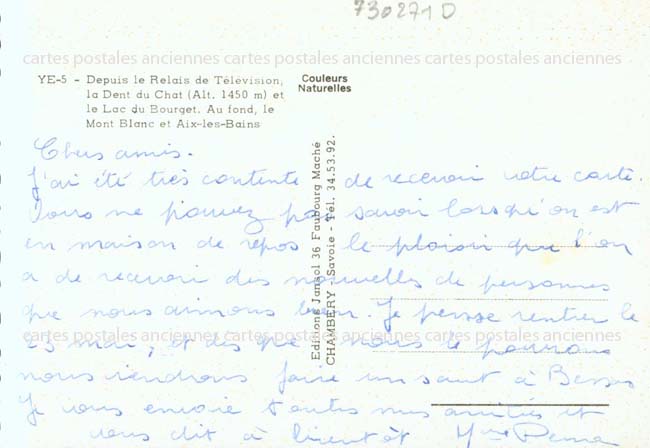 730271 D
cartes postales anciennes cartes postales anciennes cartes postales anciennes
YE-5 - Depuis le Relais de Télévision,
la Dent du Chat (Alt. 1450 m) et
le Lac du Bourget. Au fond, le
Mont Blanc et Aix-les-Bains
Couleurs
Naturelles
Editions Jansol 36 Faubourg Maché
CHAMBERY - Savoie - Tél. 34.53.92.
Chers amis.
J'ai été très contente de recevoir votre carte.
Vous ne pouvez pas savoir lorsqu'on est
en maison de repos le plaisir que l'on
a de recevoir des nouvelles de personnes
que nous aimons bien. Je pense rentrer le
cartes postales anciennes cartes postales anciennes cartes postales anciennes
23 mai, et dès que nous le pourrons
nous viendrons faire un saut à
Je vous envoie toutes mes amitiés et
vous dit à bientôt Mme